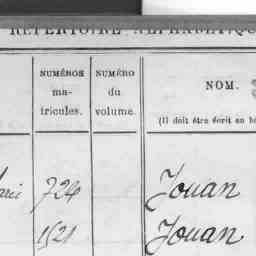 RÉPERTOIRE ALPHABÉTIQU
NUMÉROS matricules. NUMÉRO du volume. NOM.
(Il doit être écrit en bâ
arie 724 Jouan
1521 Jouan